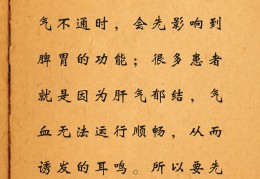 气不通时，会先影响到
脾胃的功能；很多患者
就是因为肝气郁结，气
血无法运行顺畅，从而
诱发的耳鸣。所以要先